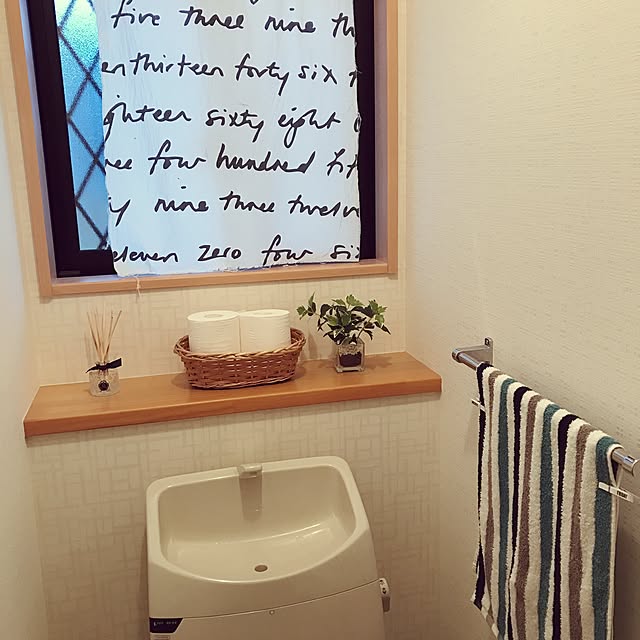 five three nine th
en thirteen forty six
ghteen sixty eight
ee four hundred fif
y nine three twelve
eleven zero four six